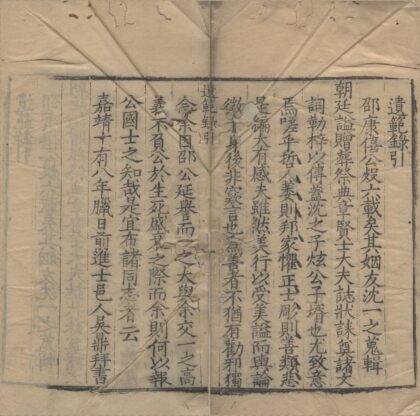 遺範錄引
邵康僖公殁六載矣其姻友沈一之蒐輯
朝廷謚贈葬祭典章賢士大夫誌狀誄盤諸文
詞勒梓以傳蓋沈之子炫公子壻也尤致意
焉嗟乎哲人萎則邦家懼正士彫則善類悲
是編大有感夫雖然美行以受美謚而輿論
徵於身後非寠言也為善者不猶有勸邪獨
遺範錄引
念余因邵公延譽而一之大與余交一之高
義不負公於生死盛衰之際而余則何以報
公國士之知哉是宜布諸同志者云
嘉靖十有八年臘日前進士邑人吳鼎拜書